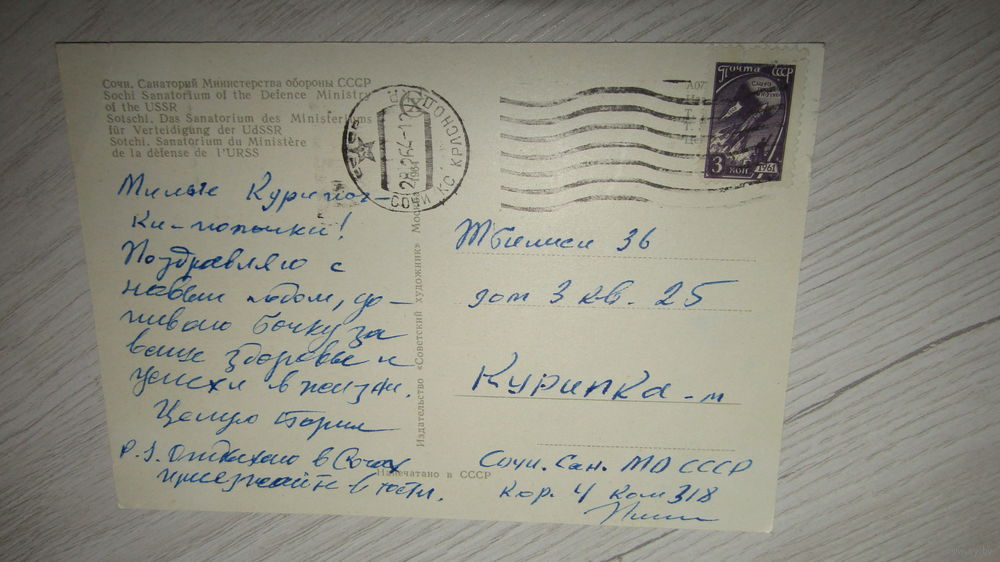 Сочи. Санаторий Министерства обороны СССР
Sochi Sanatorium of the Defence Ministry
of the USSR
Sotschi. Das Sanatorium des Ministeriums
für Verteidigung der UdSSR
Sotchi. Sanatorium du Ministère
de la défense de l'URSS
Милые Курипоч-
ки-попочки!
Поздравляю с
новым годом, до-
пиваю бочку за
ваше здоровье и
успехи в жизни.
Целую
P.S. Отдыхаю в Сочах
приезжайте в гости.
Издательство «Советский художник» Москва 1964
Напечатано в СССР
СОЧИ КС КРАСНОДАР
28.12.64-1
Почта СССР
3 коп
1961
Тбилиси 36
дом 3 кв. 25
Курипка-м
Сочи. Сан. МО СССР
кор. 4 ком 318